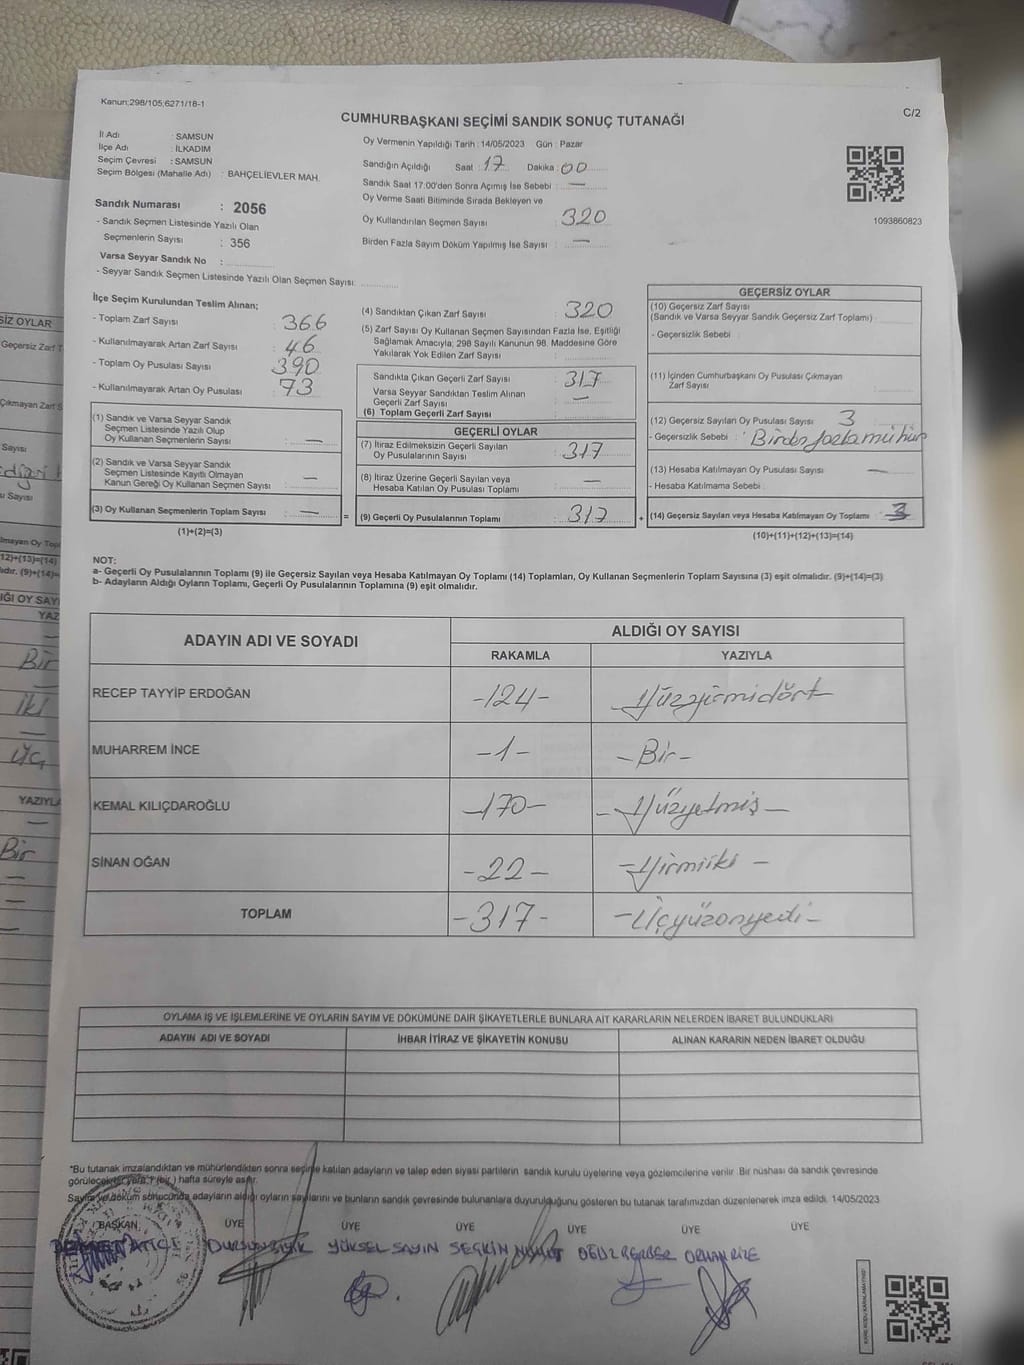 Kanun;298/105;6271/18-1
C/2
CUMHURBAŞKANI SEÇİMİ SANDIK SONUÇ TUTANAĞI
İl Adı : SAMSUN
İlçe Adı : İLKADIM
Seçim Çevresi : SAMSUN
Seçim Bölgesi (Mahalle Adı) : BAHÇELİEVLER MAH.
Oy Vermenin Yapıldığı Tarih : 14/05/2023 Gün : Pazar
Sandığın Açıldığı Saat : 17 Dakika : 00
Sandık Saat 17:00'den Sonra Açımış İse Sebebi : —
Oy Verme Saati Bitiminde Sırada Bekleyen ve
Oy Kullandırılan Seçmen Sayısı : 320
Birden Fazla Sayım Döküm Yapılmış İse Sayısı : —
1093860823
Sandık Numarası : 2056
- Sandık Seçmen Listesinde Yazılı Olan
Seçmenlerin Sayısı : 356
Varsa Seyyar Sandık No :
- Seyyar Sandık Seçmen Listesinde Yazılı Olan Seçmen Sayısı:
İlçe Seçim Kurulundan Teslim Alınan;
- Toplam Zarf Sayısı : 366
- Kullanılmayarak Artan Zarf Sayısı : 46
- Toplam Oy Pusulası Sayısı : 390
- Kullanılmayarak Artan Oy Pusulası : 73
(1) Sandık ve Varsa Seyyar Sandık
Seçmen Listesinde Yazılı Olup
Oy Kullanan Seçmenlerin Sayısı : —
(2) Sandık ve Varsa Seyyar Sandık
Seçmen Listesinde Kayıtlı Olmayan
Kanun Gereği Oy Kullanan Seçmen Sayısı : —
(3) Oy Kullanan Seçmenlerin Toplam Sayısı : — =
(1)+(2)=(3)
(4) Sandıktan Çıkan Zarf Sayısı : 320
(5) Zarf Sayısı Oy Kullanan Seçmen Sayısından Fazla İse, Eşitliği
Sağlamak Amacıyla; 298 Sayılı Kanunun 98. Maddesine Göre
Yakılarak Yok Edilen Zarf Sayısı :
Sandıkta Çıkan Geçerli Zarf Sayısı : 317
Varsa Seyyar Sandıktan Teslim Alınan
Geçerli Zarf Sayısı : —
(6) Toplam Geçerli Zarf Sayısı :
GEÇERLİ OYLAR
(7) İtiraz Edilmeksizin Geçerli Sayılan
Oy Pusulalarının Sayısı : 317
(8) İtiraz Üzerine Geçerli Sayılan veya
Hesaba Katılan Oy Pusulası Toplamı : —
(9) Geçerli Oy Pusulalarının Toplamı : 317 +
GEÇERSİZ OYLAR
(10) Geçersiz Zarf Sayısı
(Sandık ve Varsa Seyyar Sandık Geçersiz Zarf Toplamı) :
- Geçersizlik Sebebi :
(11) İçinden Cumhurbaşkanı Oy Pusulası Çıkmayan
Zarf Sayısı :
(12) Geçersiz Sayılan Oy Pusulası Sayısı : 3
- Geçersizlik Sebebi : Birden fazla mühür
(13) Hesaba Katılmayan Oy Pusulası Sayısı : —
- Hesaba Katılmama Sebebi :
(14) Geçersiz Sayılan veya Hesaba Katılmayan Oy Toplamı : 3
(10)+(11)+(12)+(13)=(14)
NOT:
a- Geçerli Oy Pusulalarının Toplamı (9) ile Geçersiz Sayılan veya Hesaba Katılmayan Oy Toplamı (14) Toplamları, Oy Kullanan Seçmenlerin Toplam Sayısına (3) eşit olmalıdır. (9)+(14)=(3)
b- Adayların Aldığı Oyların Toplamı, Geçerli Oy Pusulalarının Toplamına (9) eşit olmalıdır.
ADAYIN ADI VE SOYADI
ALDIĞI OY SAYISI
RAKAMLA YAZIYLA
RECEP TAYYİP ERDOĞAN -124- -Yüzyirmidört-
MUHARREM İNCE -1- -Bir-
KEMAL KILIÇDAROĞLU -170- -Yüzyetmiş-
SİNAN OĞAN -22- -Yirmiiki-
TOPLAM -317- -Üçyüzonyedi-
OYLAMA İŞ VE İŞLEMLERİNE VE OYLARIN SAYIM VE DÖKÜMÜNE DAİR ŞİKAYETLERLE BUNLARA AİT KARARLARIN NELERDEN İBARET BULUNDUKLARI
ADAYIN ADI VE SOYADI İHBAR İTİRAZ VE ŞİKAYETİN KONUSU ALINAN KARARIN NEDEN İBARET OLDUĞU
*Bu tutanak imzalandıktan ve mühürlendikten sonra seçime katılan adayların ve talep eden siyasi partilerin sandık kurulu üyelerine veya gözlemcilerine verilir. Bir nüshası da sandık çevresinde
görülecek bir yere 1 (bir) hafta süreyle asılır.
Sayım ve döküm sonucunda adayların aldığı oyların sayılarını ve bunların sandık çevresinde bulunanlara duyurulduğunu gösteren bu tutanak tarafımızdan düzenlenerek imza edildi. 14/05/2023
BAŞKAN ÜYE ÜYE ÜYE ÜYE ÜYE ÜYE
YÜKSEL SAYIN SEÇKİN
SİZ OYLAR
YAZIYLA
Bir
İki
Üç
YAZIYLA
Bir